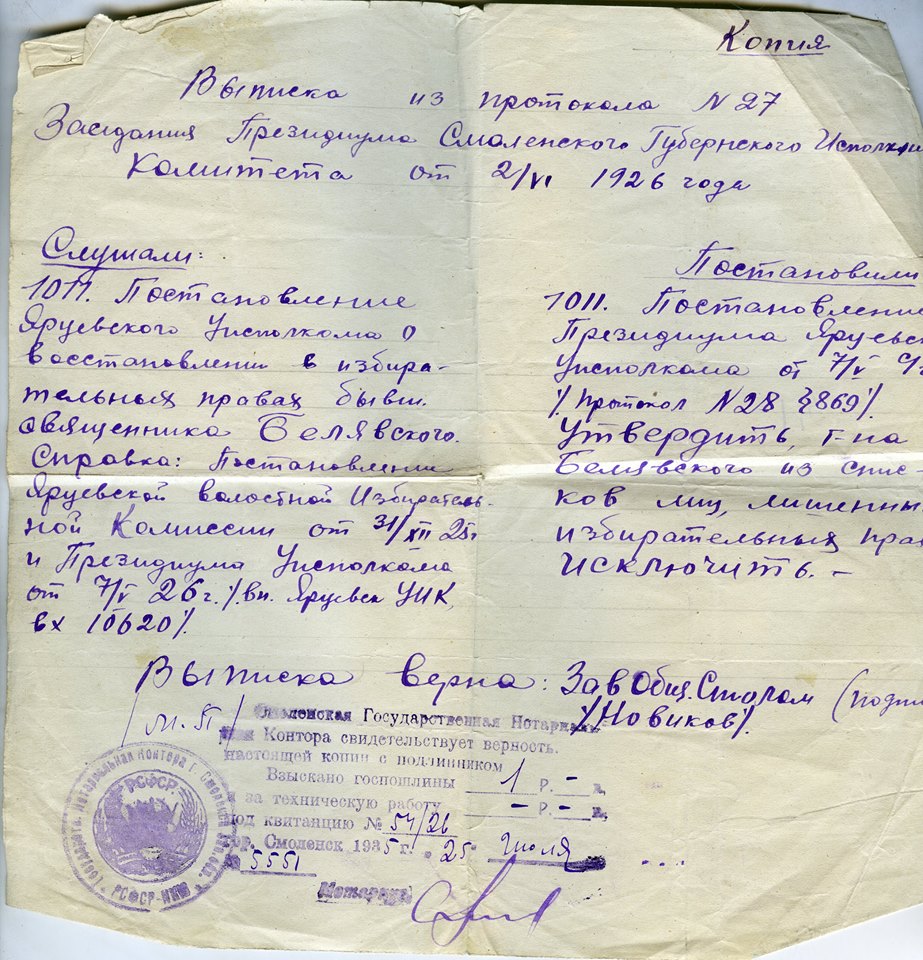 Копия
Выписка из протокола N 27
Заседания Президиума Смоленского Губернского Исполком
Комитета от 2/VI 1926 года
Слушали:
1011. Постановление
Ярцевского Уисполкома о
восстановлении в избира-
тельных правах бывш.
священника Белявского.
Справка: Постановление
Ярцевской волостной Избиратель-
ной Комиссии от 31/XII 25г
и Президиума Уисполкома
от 7/V 26 г. /. вн. Ярцевск УИК,
вх 10620/.
Постановили
1011. Постановление
Президиума Ярцевск
Уисполкома от 7/V с/
/. Протокол N 28 §869/.
Утвердить, г-на
Белявского из спис
ков лиц, лишенны
избирательных прав
исключить. –
Выписка верна: Зав Общ. Столом (подпи
/Новиков/.
/М.П./
Смоленская Государственная Нотариаль
ная Контора свидетельствует верность
настоящей копии с подлинником
Взыскано госпошлины 1 р. – к,
за техническую работу – р. – к,
под квитанцию № 54/26
гор. Смоленск 1935 г. „ 25 июля
№ 5551
Нотариус
Государств. Нотариальная Контора г. Смоленск
РСФСР
РСФСР-НКЮ